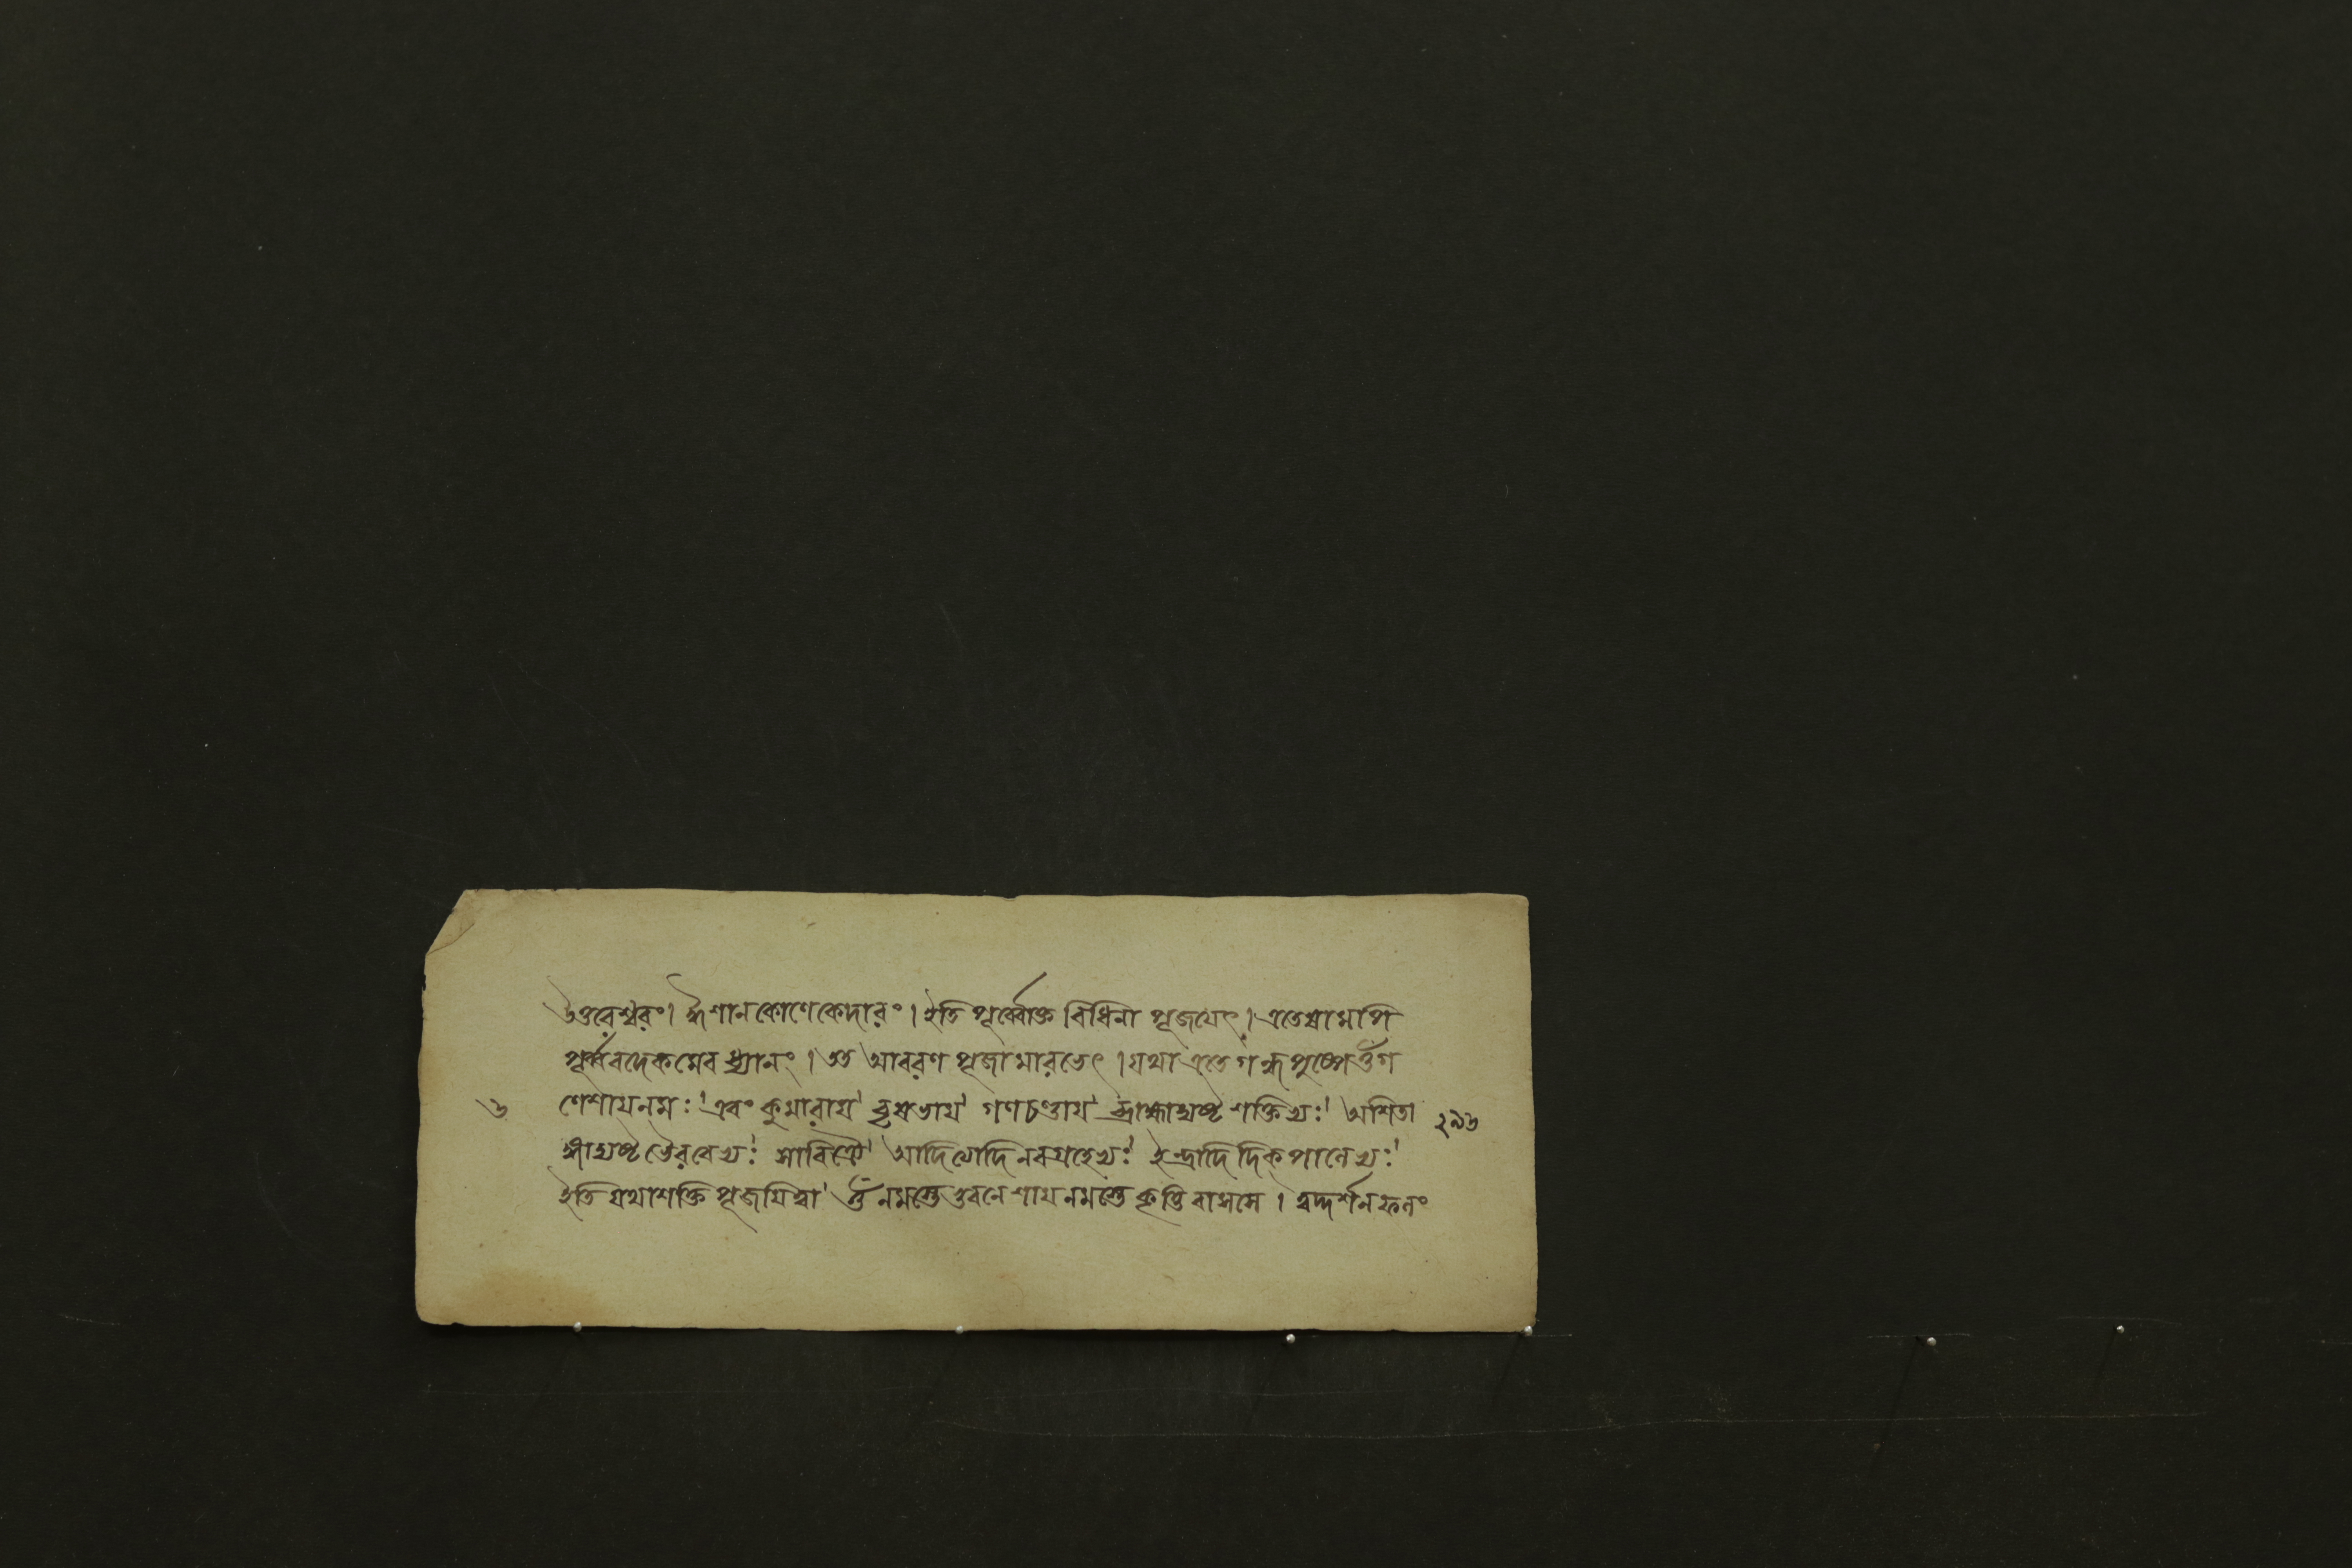 উত্তরেশ্বরং। ঈশানকোণেকেদারং। ইতি পূর্ব্বোক্ত বিধিনা পূজয়েৎ। এতেষামপি
পূর্ব্ববদেকমেব ধ্যানং। তত আবরণ পূজামারভেৎ। যথা এতে গন্ধপুষ্পে ওঁ গ
৩ ণেশায়নমঃ। এবং কুমারায়। বৃষভায়। গণচণ্ডায়। ব্রাহ্ম্যাদ্যষ্ট শক্তিভ্যঃ। অশিতা ২৯৩
ঙ্গাদ্যষ্ট ভৈরবেভ্যঃ। সাবিত্রৈ। আদিত্যাদি নবগ্রহেভ্যঃ। ইন্দ্রাদি দিক্‌পালেভ্যঃ।
ইতি যথাশক্তি পূজয়িত্বা। ওঁ নমস্তে ভুবনেশায় নমস্তে কৃত্তিবাসসে। ত্বদ্দর্শনফলং